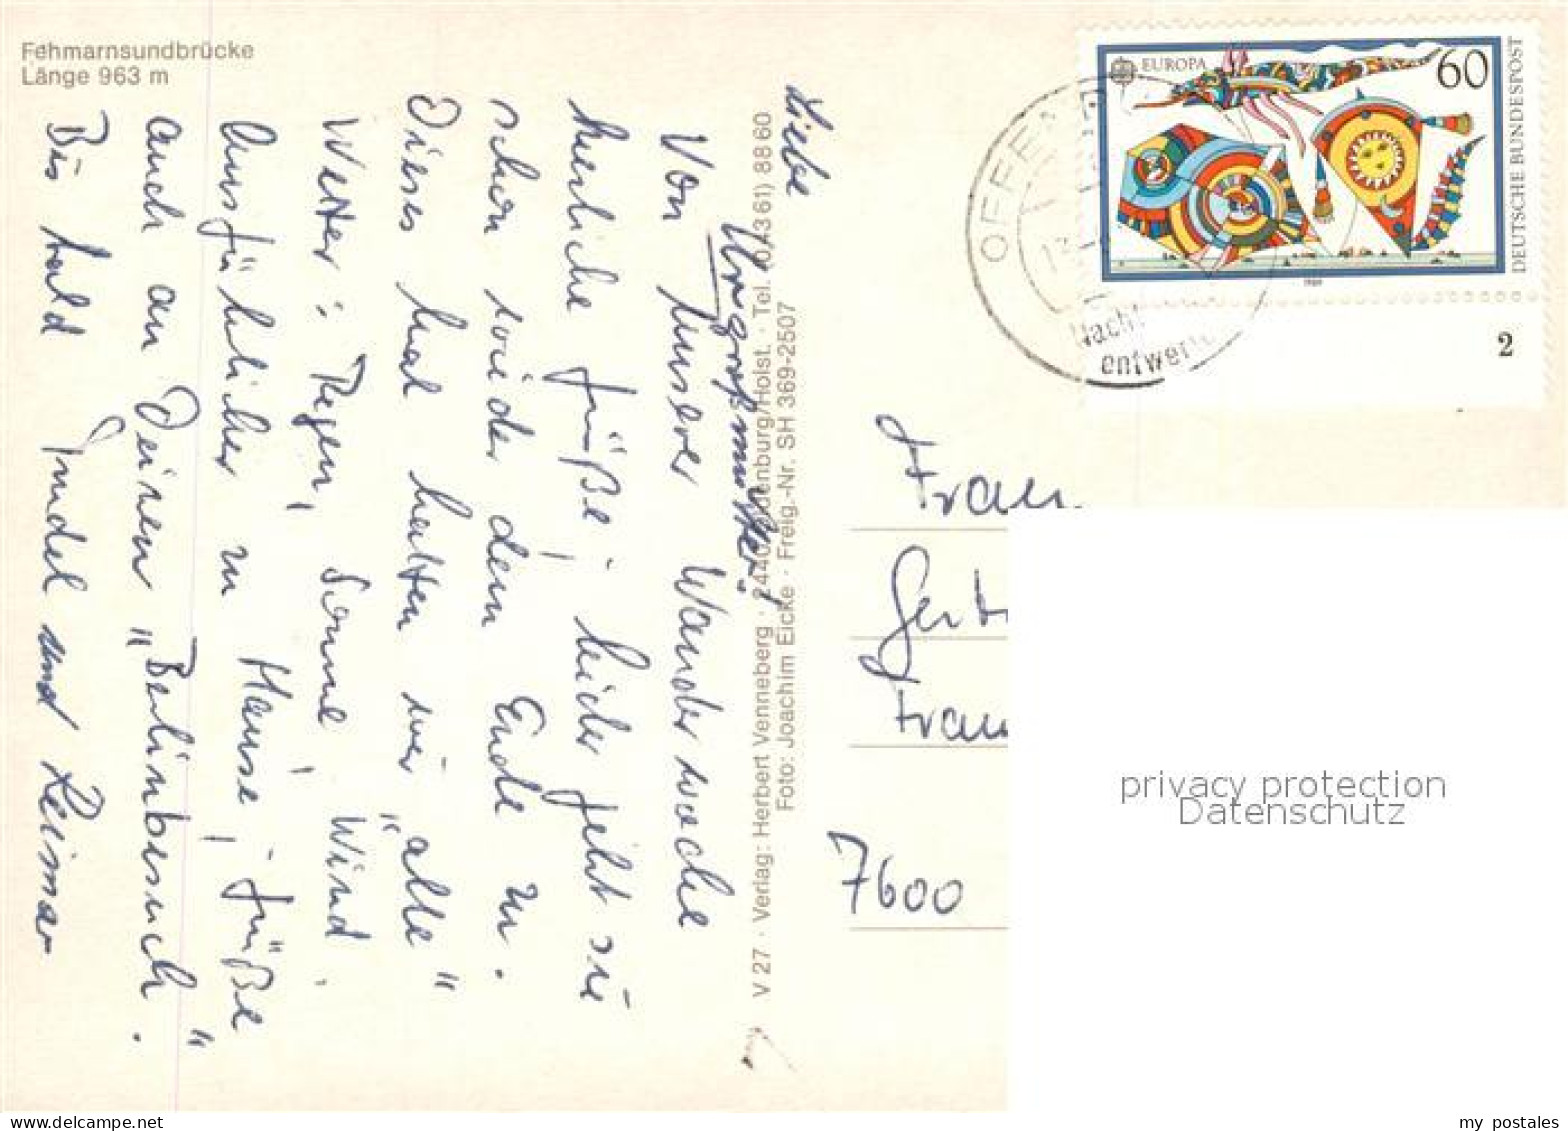 Fehmarnsundbrücke
Länge 963 m
Liebe
Urgroßmutter!
Von unserer Wanderwoche
herzliche Grüße; leider geht sie
schon wieder dem Ende zu.
Dieses mal hatten wir „alle“
Wetter: Regen, Sonne, Wind.
Ausführlicher zu Hause; Grüße
auch an Deinen „Berlinbesuch“.
Bis bald Gundel und Reimar
V 27 · Verlag: Herbert Venneberg · 2440 Oldenburg/Holst. · Tel. (04361) 8860
Foto: Joachim Eicke · Freig.-Nr. SH 369-2507
EUROPA
60
DEUTSCHE BUNDESPOST
1989
2
OFFEN
Nacht
entwertet
Frau
Gert
Frau
7600
privacy protection
Datenschutz
my postales